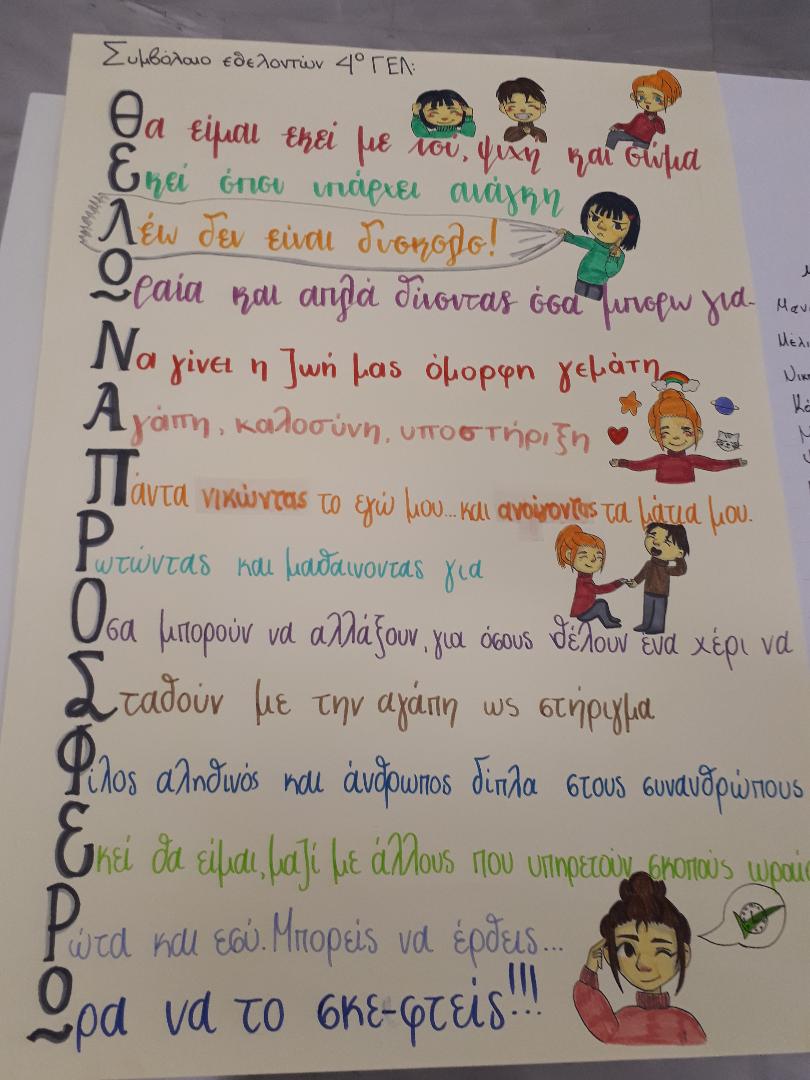 Συμβόλαιο εθελοντών 4º ΓΕΛ:
Θα είμαι εκεί με νού, ψυχή και σώμα
Εκεί όπου υπάρχει ανάγκη
Λέω δεν είναι δύσκολο!
Ωραία και απλά δίνοντας όσα μπορώ για-
Να γίνει η ζωή μας όμορφη γεμάτη
Αγάπη, καλοσύνη, υποστήριξη
Πάντα νικώντας το εγώ μου... και ανοίγοντας τα μάτια μου.
Ρωτώντας και μαθαινοντας για
Οσα μπορούν να αλλάξουν, για όσους θέλουν ένα χέρι να
Σταθούν με την αγάπη ως στήριγμα
Φίλος αληθινός και άνθρωπος δίπλα στους συνανθρώπους
Εκεί θα είμαι, μαζί με άλλους που υπηρετούν σκοπούς
Ρώτα και εσύ. Μπορείς να έρθεις...
Ωρα να το σκε-φτείς!!!